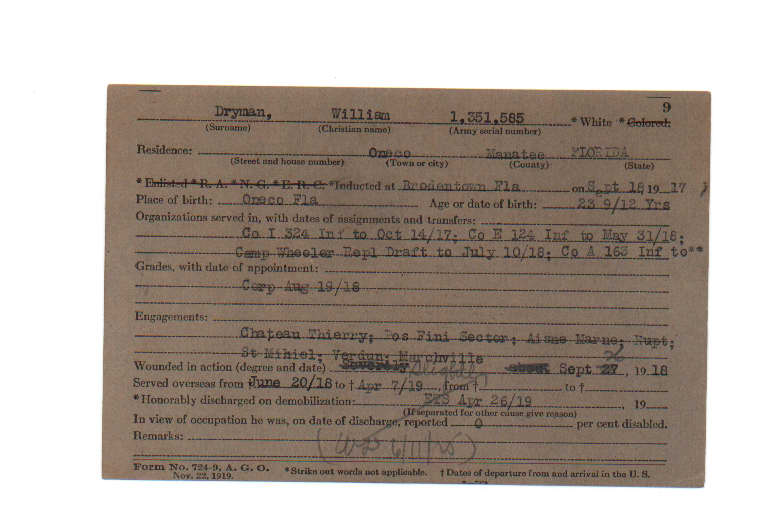 9
Dryman, William 1,351,585 * White * Colored.
(Surname) (Christian name) (Army serial number)
Residence: Oneco Manatee FLORIDA
(Street and house number) (Town or city) (County) (State)
* Enlisted * R. A. * N. G. * E. R. C. * Inducted at Brodentown Fla on Sept 18, 19 17
Place of birth: Oneco Fla Age or date of birth: 23 9/12 Yrs
Organizations served in, with dates of assignments and transfers:
Co I 324 Inf to Oct 14/17; Co E 124 Inf to May 31/18;
Camp Wheeler Repl Draft to July 10/18; Co A 163 Inf to**
Grades, with date of appointment:
Corp Aug 19/18
Engagements:
Chateau Thierry; Pos Fini Sector; Aisne Marne; Rupt;
St Mihiel; Verdun; Marchville
Wounded in action (degree and date) Severely Slightly about Sept 27 26, 19 18
Served overseas from June 20/18 to † Apr 7/19, from † to †
* Honorably discharged on demobilization: ETS Apr 26/19, 19
(If separated for other cause give reason)
In view of occupation he was, on date of discharge, reported 0 per cent disabled.
Remarks:
6/11/25)
Form No. 724-9, A. G. O. * Strike out words not applicable. † Dates of departure from and arrival in the U. S.
Nov. 22, 1919.